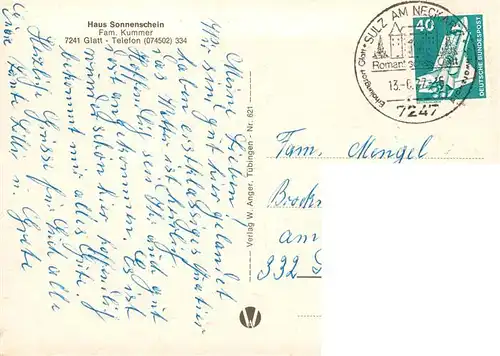 Haus Sonnenschein
Fam. Kummer
7241 Glatt - Telefon (074502) 334
Meine Lieben!
Wir sind gut hier gelandet
haben erstklassiges Quartier
das Wetter ist
Hoffen Ihr seid auch gut
angekommen. Es ist
wunderschön hier hoffentlich
bekommt mir alles Gute.
Herzl. Grüsse für Euch alle
Eure Tante Lilli u. Grete
Verlag W. Anger, Tübingen - Nr. 621
SULZ AM NECKAR
Erholungsort Glatt
13.-6.77-16
7247
40
DEUTSCHE BUNDESPOST
Fam. Mengel
Brock
am
332